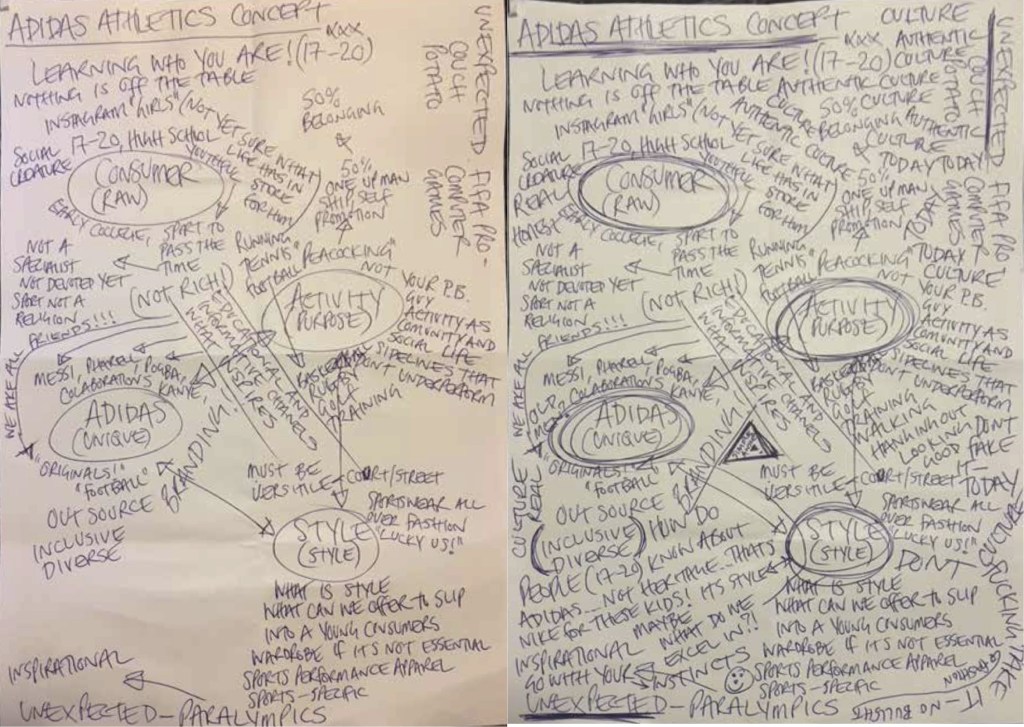 ADIDAS ATHLETICS CONCEPT
XXX
LEARNING WHO YOU ARE! (17-20)
NOTHING IS OFF THE TABLE
INSTAGRAM "GIRLS" (NOT YET SURE WHAT
LIFE HAS IN
STORE
FOR HIM)
SOCIAL
CREATURE
17-20, HIGH SCHOOL
YOUTHFUL
CONSUMER
(RAW)
EARLY COLLEGE,
50%
BELONGING
&
50%
ONE UP MAN
SHIP SELF
PROMOTION
UNEXPECTED
COUCH
POTATO
FIFA PRO-
COMPUTER
GAMES
NOT A
SPECIALIST
NOT DEVOTED YET
SPORT NOT A
RELIGION
SPORT TO
PASS THE
TIME
(NOT RICH!)
RUNNING
TENNIS
FOOTBALL
"PEACOCKING"
ACTIVITY
(PURPOSE)
NOT YOUR P.B.
GUY
ACTIVITY AS
COMUNITY AND
SOCIAL LIFE
SIDELINES THAT
DON'T UNDERPERFORM
WE ARE ALL
FRIENDS!!!
MESSI, PHARELL, POGBA,
COLABORATIONS KANYE,
WHAT INSPIRES
INFORMATIVE
EDUCATIONAL AND
CHANNELS
RUGBY
GOLF
TRAINING
ADIDAS
(UNIQUE)
"ORIGINALS!"
"FOOTBALL"
BRANDING!
OUT SOURCE
INCLUSIVE
DIVERSE
MUST BE
VERSITILE
COURT/STREET
STYLE
(STYLE)
SPORTSWEAR ALL
OVER FASHION
LUCKY US!"
WHAT IS STYLE
WHAT CAN WE OFFER TO SLIP
INTO A YOUNG CONSUMERS
WARDROBE IF IT'S NOT ESSENTIAL
SPORTS PERFORMANCE APPAREL
SPORTS-SPECIFIC
INSPIRATIONAL
UNEXPECTED-PARALYMPICS
ADIDAS ATHLETICS CONCEPT
CULTURE
XXX AUTHENTIC
LEARNING WHO YOU ARE! (17-20) CULTURE
NOTHING IS OFF THE TABLE AUTHENTIC CULTURE
INSTAGRAM "GIRLS" (NOT YET SURE WHAT
LIFE HAS IN
STORE
FOR HIM
CULTURE
AUTHENTIC CULTURE
50% CULTURE
BELONGING AUTHENTIC
& CULTURE
50%
ONE UP MAN
SHIP SELF
PROMOTION
TODAY TODAY
UNEXPECTED
COUCH
POTATO
FIFA PRO
COMPUTER
GAMES
SOCIAL
CREATURE
REAL
HONEST
17-20, HIGH SCHOOL
YOUTHFUL
CONSUMER
(RAW)
EARLY COLLEGE,
TODAY
"TODAY"
CULTURE
NOT A
SPECIALIST
NOT DEVOTED YET
SPORT NOT A
RELIGION
SPORT TO
PASS THE
TIME
(NOT RICH!)
RUNNING
TENNIS
FOOTBALL
"PEACOCKING"
ACTIVITY
(PURPOSE)
NOT YOUR P.B.
GUY
ACTIVITY AS
COMUNITY AND
SOCIAL LIFE
SIDELINES THAT
DON'T UNDERPERFORM
WE ARE ALL
FRIENDS!!!
MESSI, PHARELL, POGBA,
COLABORATIONS KANYE,
WHAT INSPIRES
INFORMATIVE
EDUCATIONAL AND
CHANNELS
RUGBY
GOLF
TRAINING
WALKING
HANGING OUT
LOOKING
GOOD
DONT
FAKE
IT-
TODAY
ADIDAS
(UNIQUE)
"ORIGINALS!"
"FOOTBALL"
BRANDING!
CULTURE
REAL
OUT SOURCE
(INCLUSIVE
DIVERSE)
MUST BE
VERSITILE
COURT/STREET
STYLE
(STYLE)
SPORTSWEAR ALL
OVER FASHION
LUCKY US!"
HOW DO
PEOPLE (17-20) KNOW ABOUT
ADIDAS... NOT HERITAGE... THATS
NIKE FOR THESE KIDS! IT'S STYLE
MAYBE
WHAT DO WE
EXCEL IN?!
INSPIRATIONAL
GO WITH YOUR
INSTINCTS
DONT
FUCKING
FAKE
IT
CULTURE
NO BULLSHIT
WHAT IS STYLE
WHAT CAN WE OFFER TO SLIP
INTO A YOUNG CONSUMERS
WARDROBE IF IT'S NOT ESSENTIAL
SPORTS PERFORMANCE APPAREL
SPORTS-SPECIFIC
UNEXPECTED-PARALYMPICS